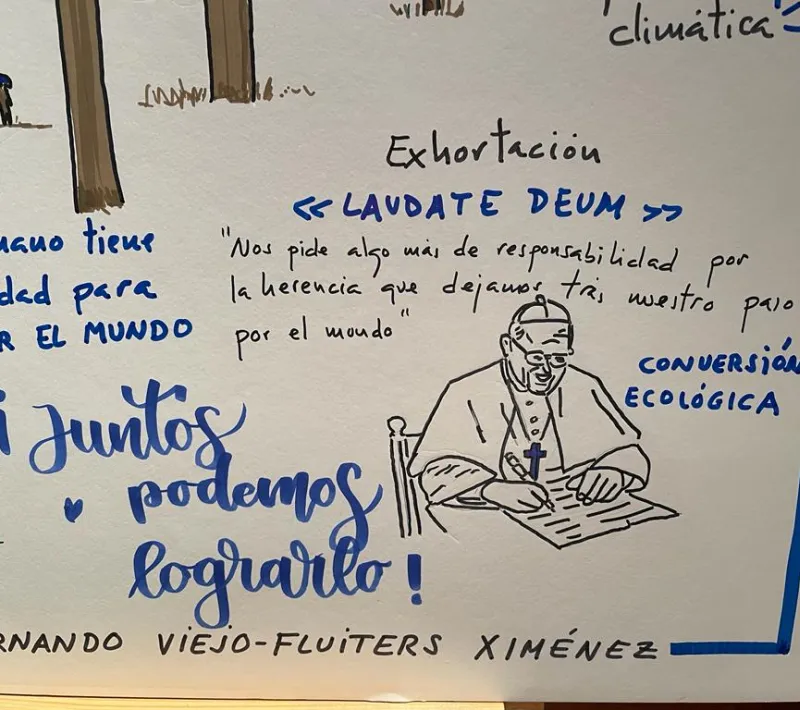 climática
Exhortación
<< LAUDATE DEUM >>
"Nos pide algo más de responsabilidad por
la herencia que dejamos tras nuestro paso
por el mundo"
CONVERSIÓN
ECOLÓGICA
mano tiene
dad para
R EL MUNDO
i Juntos
podemos
lograrlo!
RNANDO VIEJO-FLUITERS XIMÉNEZ